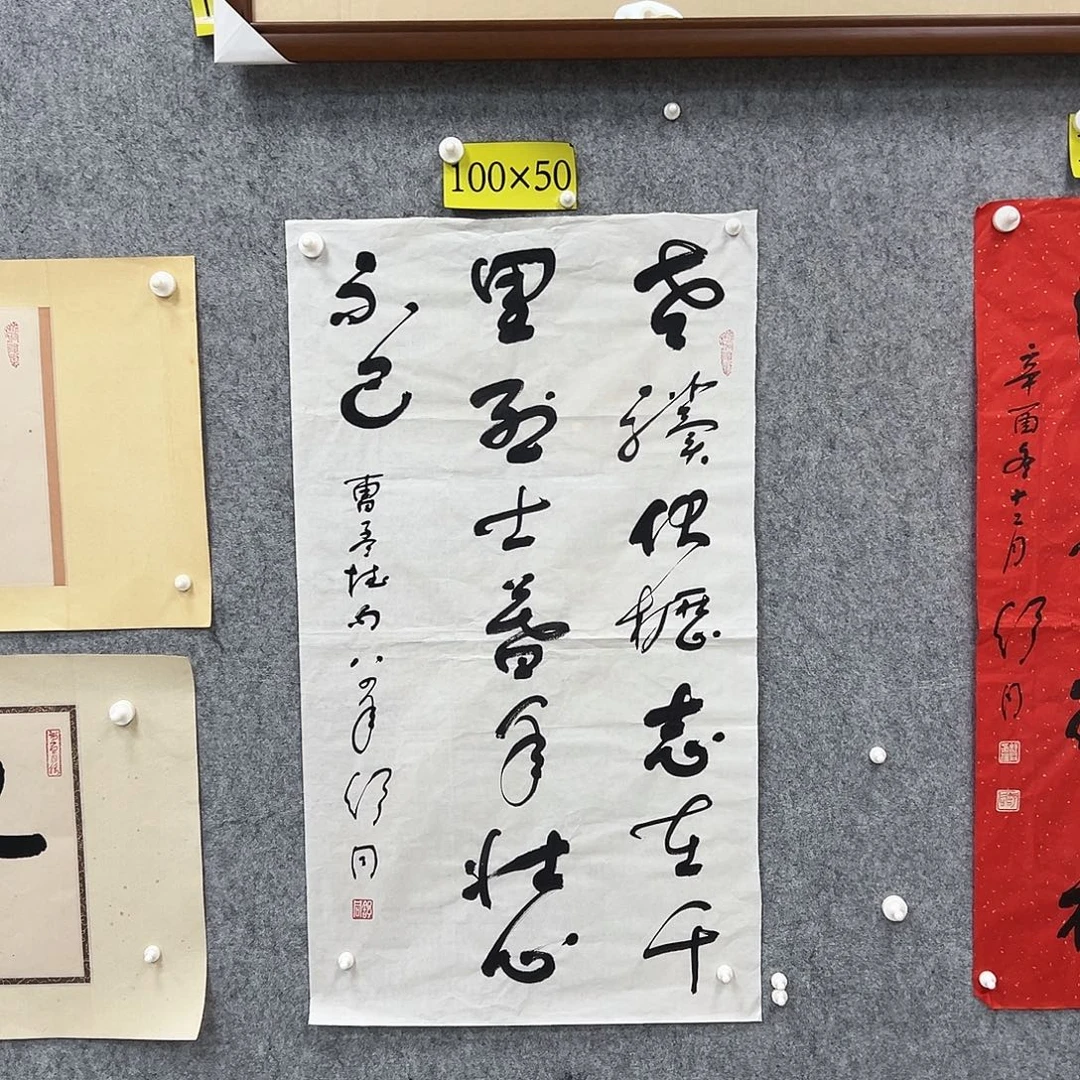 100×50
老驥伏櫪志在千
里烈士暮年壯心
不已
曹孟德句八四年舒同
辛酉年十二月舒同